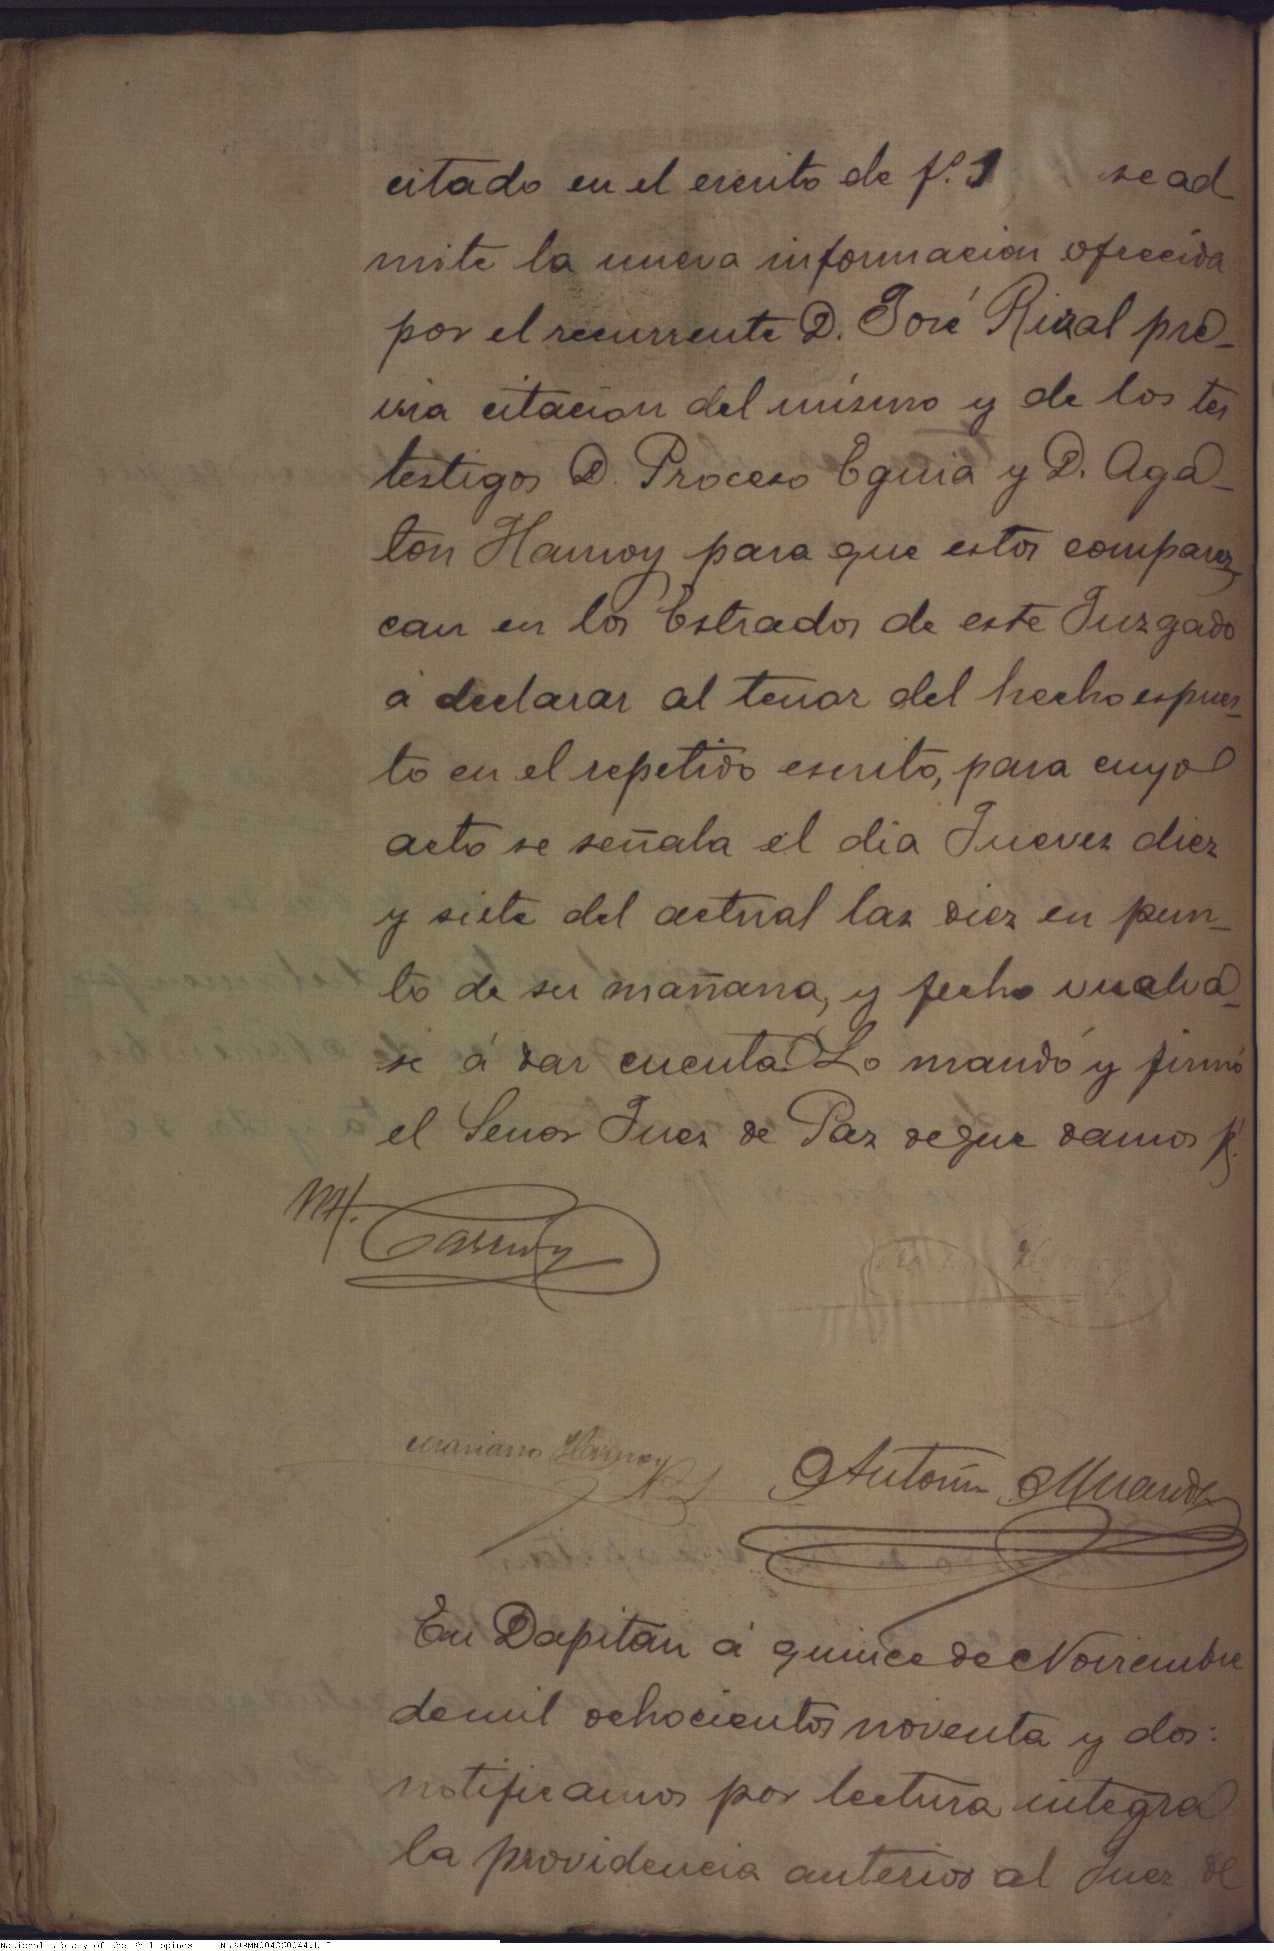 citado en el escrito de f.º 1 se ad
mite la nueva informacion ofrecida
por el recurrente D. José Rizal pre-
via citacion del mismo y de los tes
testigos D. Proceso Eguia y D. Aga-
ton Hamoy para que estos comparez
can en los Estrados de este Juzgado
á declarar al tenor del hecho espues-
to en el repetido escrito, para cuyo
acto se señala el dia Jueves diez
y siete del actual las diez en pun-
to de su mañana, y fecho vuelva-
se á dar cuenta. Lo mandó y firmó
el Senor Juez de Paz de que damos f.
Mariano Hamoy
Antonio Miranda
En Dapitan á quince de Noviembre
de mil ochocientos noventa y dos:
notificamos por lectura integra
la providencia anterior al Juez de
National Library of the Philippines